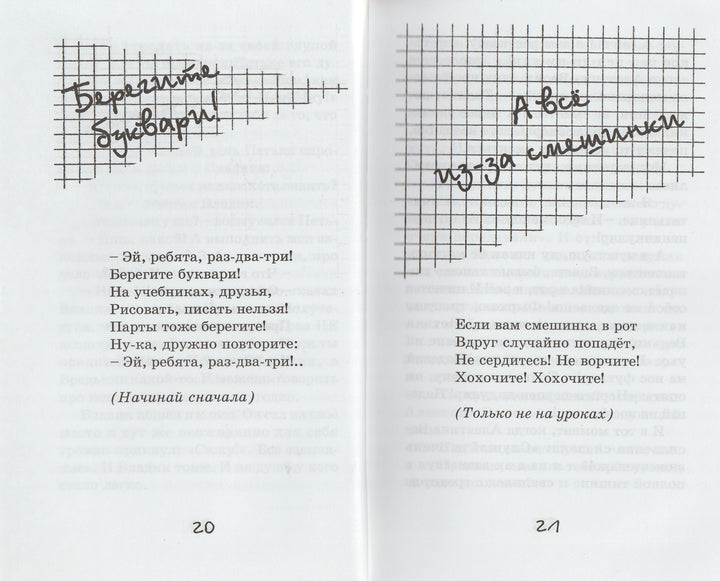 Берегите
буквари!
– Эй, ребята, раз-два-три!
Берегите буквари!
На учебниках, друзья,
Рисовать, писать нельзя!
Парты тоже берегите!
Ну-ка, дружно повторите:
– Эй, ребята, раз-два-три!..
(Начинай сначала)
20
А всё
из-за смешинки
Если вам смешинка в рот
Вдруг случайно попадёт,
Не сердитесь! Не ворчите!
Хохочите! Хохочите!
(Только не на уроках)
21